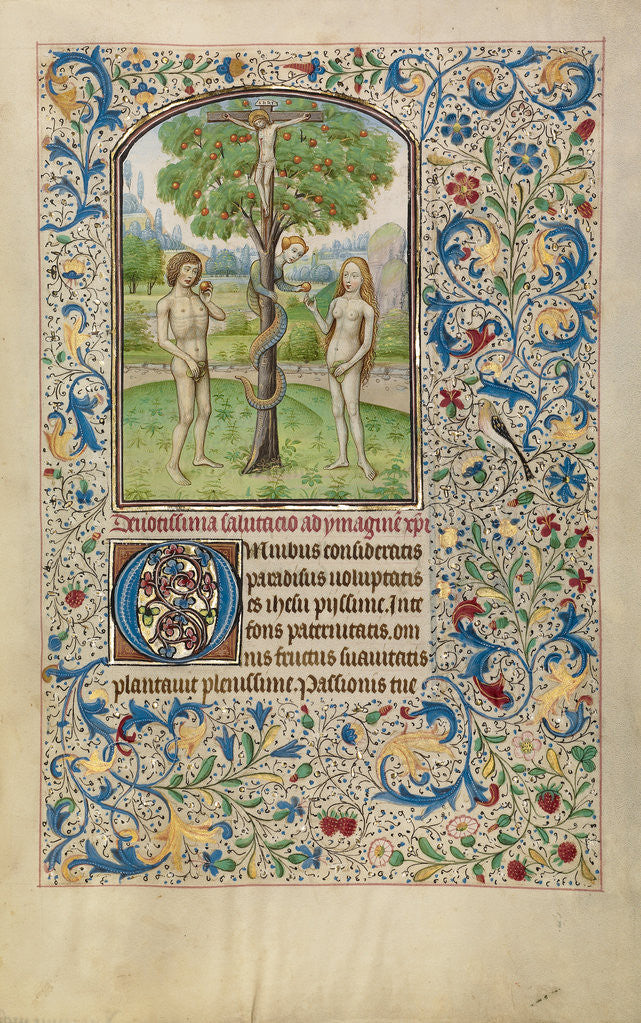 INRI
Deuotissima salutacio ad ymaginē xpi
Omnibus consideratis
paradisus uoluptatis
es ihesu pijssime. In te
fons paternitatis. om
nis fructus suauitatis
plantauit plenissime. Passionis tue